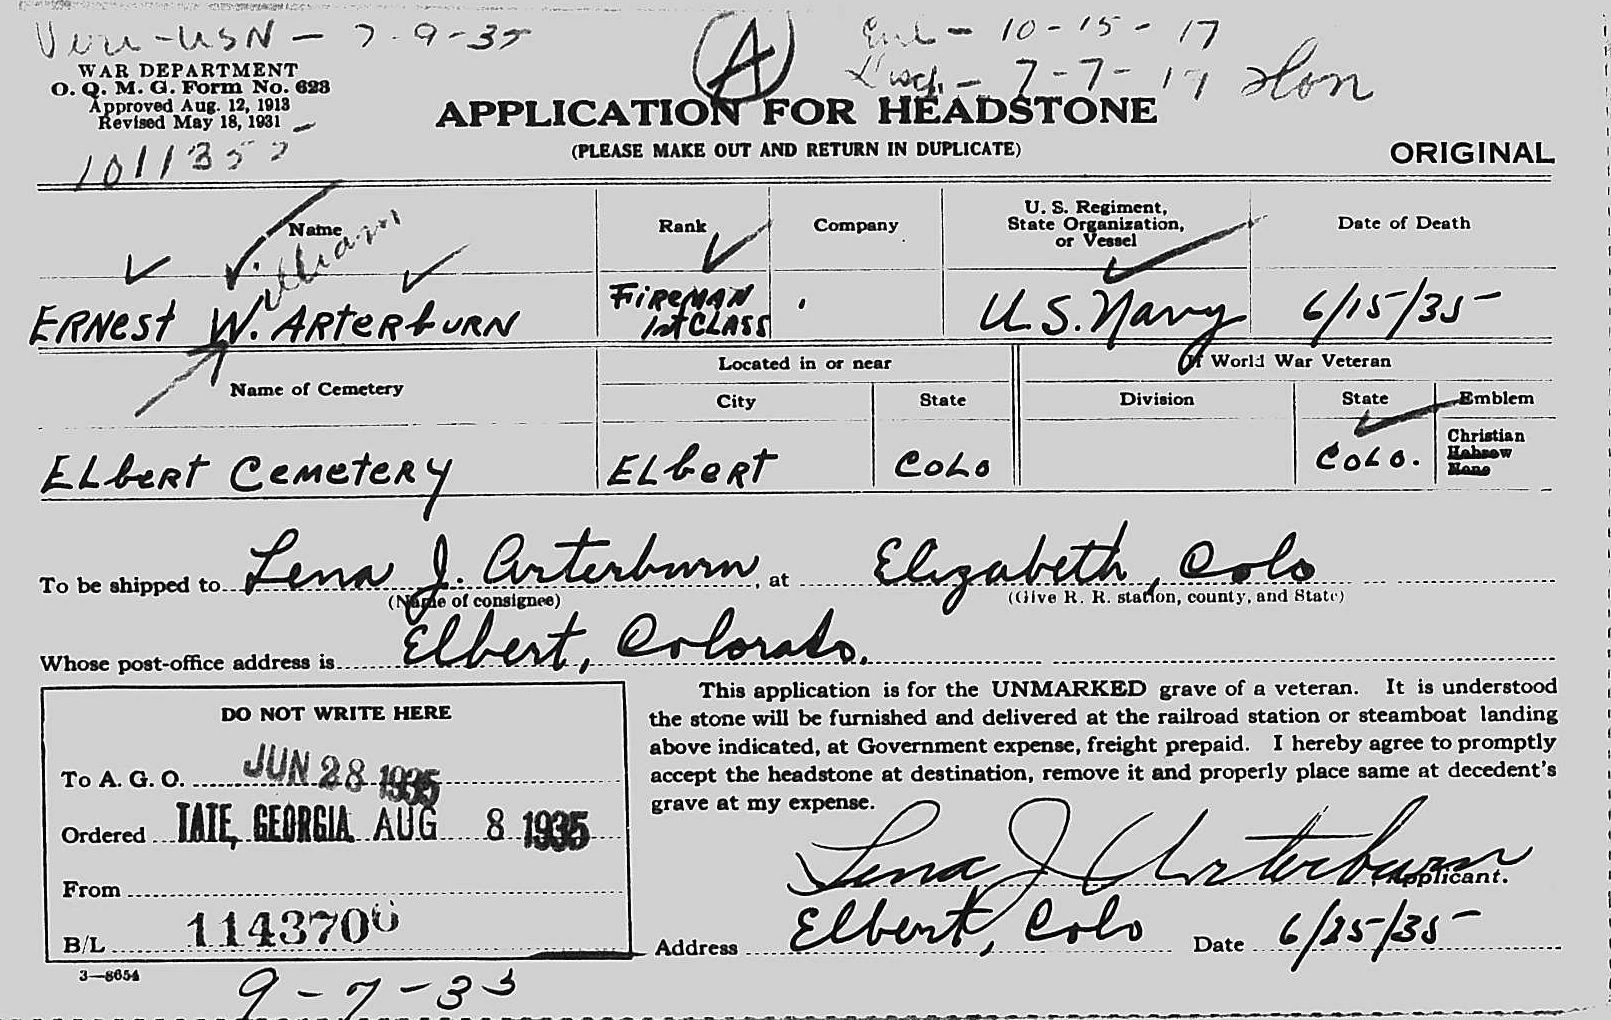 Veri-USN - 7-9-35
A
Enl - 10-15-17
Disch. - 7-7-19 Hon
WAR DEPARTMENT
O. Q. M. G. Form No. 623
Approved Aug. 12, 1913
Revised May 18, 1931
APPLICATION FOR HEADSTONE
(PLEASE MAKE OUT AND RETURN IN DUPLICATE)
ORIGINAL
Name
Rank
Company
U. S. Regiment,
State Organization,
or Vessel
Date of Death
William
ERNEST W. ARTERBURN
FIREMAN
1st CLASS
U.S. Navy
6/15/35
Name of Cemetery
Located in or near
If World War Veteran
City
State
Division
State
Emblem
ELBERT CEMETERY
ELBERT
COLO
COLO.
Christian
Hebrew
None
To be shipped to Lena J. Arterburn, at Elizabeth, Colo
(Name of consignee)
(Give R. R. station, county, and State)
Whose post-office address is Elbert, Colorado.
DO NOT WRITE HERE
To A. G. O. JUN 28 1935
Ordered TATE, GEORGIA AUG 8 1935
From
B/L 1143706
3—8654
9-7-35
This application is for the UNMARKED grave of a veteran. It is understood
the stone will be furnished and delivered at the railroad station or steamboat landing
above indicated, at Government expense, freight prepaid. I hereby agree to promptly
accept the headstone at destination, remove it and properly place same at decedent's
grave at my expense.
Lena J Arterburn, Applicant.
Address Elbert, Colo Date 6/25/35